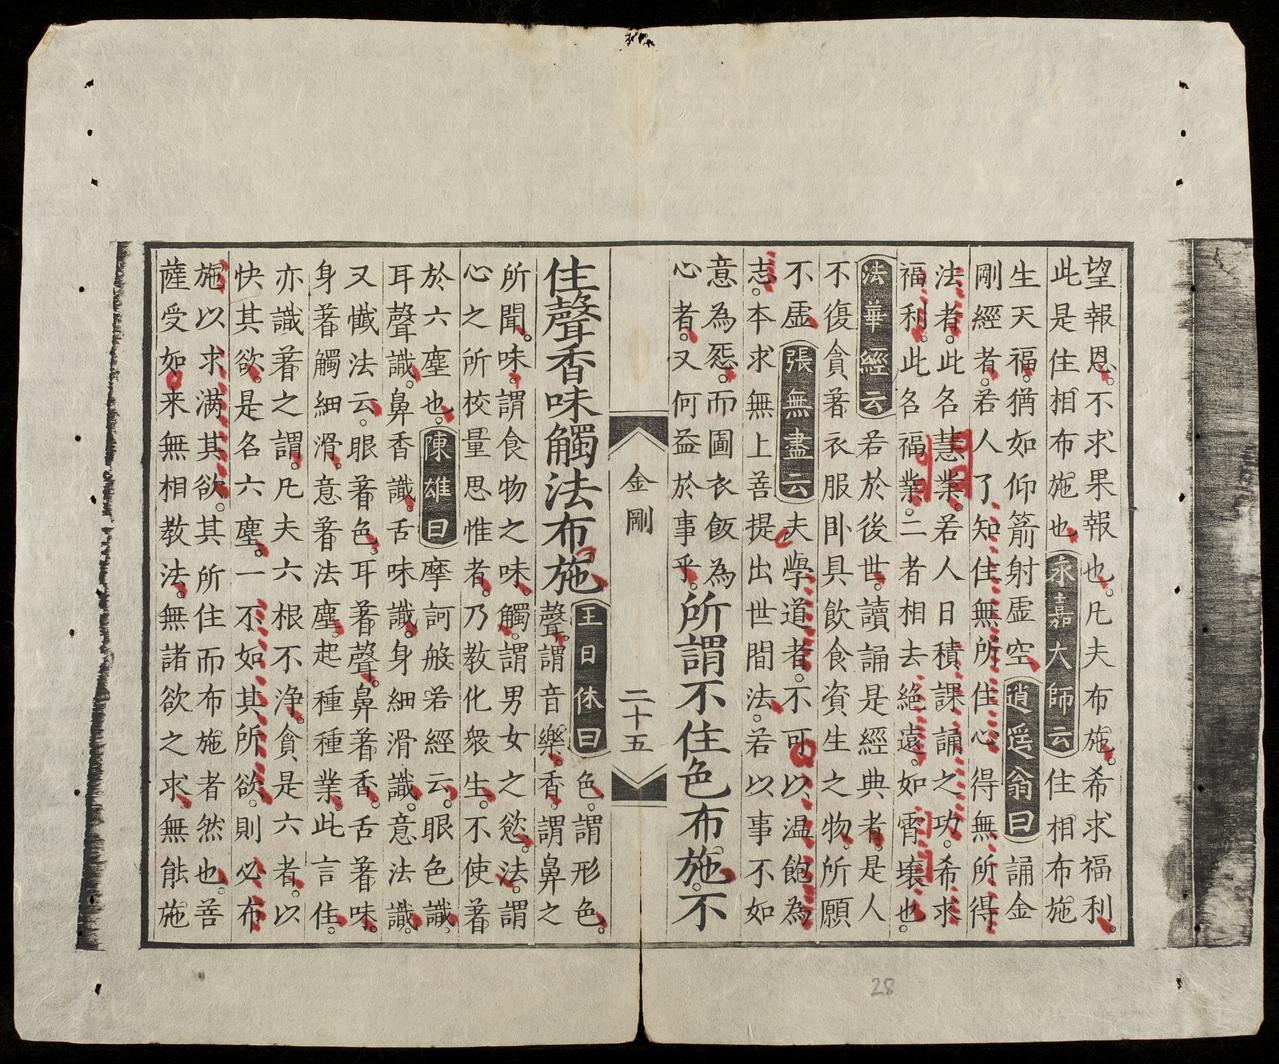 望報恩。不求果報也。凡夫布施。希求福利。
此是住相布施也。永嘉大師云住相布施
生天福。猶如仰箭射虛空。逍遙翁曰誦金
剛經者。若人了知住無所住心。得無所得
法者。此名慧業。若人日積課誦之功。希求
福利。此名福業。二者相去絕遠。如霄壤也。
法華經云若於後世。讀誦是經典者。是人
不復貪著衣服臥具飲食資生之物。所願
不虛。張無盡云夫學道者。不可以溫飽為
志。本求無上善提出世間法。若以事不如
意為怨。而圖衣飯為
心者。又何益於事乎。所謂不住色布施。不
金剛
二十五
住聲香味觸法布施。王日休曰色。謂形色。
聲。謂音樂。香。謂鼻之
所聞。味。謂食物之味。觸。謂男女之慾。法。謂
心之所校量思惟者。乃教化衆生。不使着
於六塵也。陳雄曰摩訶般若經云。眼色識。
耳聲識。鼻香識。舌味識。身細滑識。意法識。
又懺法云。眼著色。耳著聲。鼻著香。舌著味。
身著觸細滑。意著法塵。起種種業。此言住。
亦識著之謂。凡夫六根不淨。貪是六者。以
快其欲。是名六塵。一不如其所欲。則必布
施。以求滿其欲。其所住而布施者然也。菩
薩受如来無相教法。無諸欲之求。無能施
28